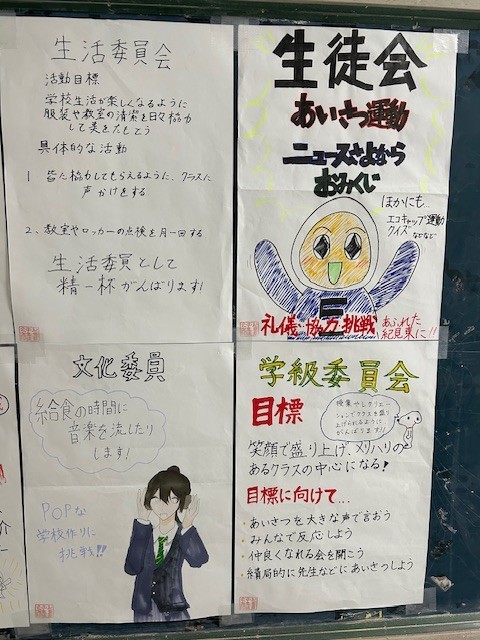 生活委員会
活動目標
学校生活が楽しくなるように
服装や教室の清潔を日々協力
して美をたもとう
具体的な活動
1 皆に協力してもらえるように、クラスに
声かけをする
2、教室やロッカーの点検を月一回する
生活委員として
精一杯がんばります!
生徒会
あいさつ運動
ニュースさよなら
おみくじ
ほかにも…
エコキャップ運動
クイズ などなど
礼儀・協力・挑戦
あふれた
紀見東に!!
文化委員
給食の時間に
音楽を流したり
します!
POPな
学校作りに
挑戦!!
学級委員会
目標
授業やレクリエー
ションでクラスを盛り
上げられるように
がんばります!!
笑顔で盛り上げ、メリハリの
あるクラスの中心になる!
目標に向けて…
・あいさつを大きな声で言おう
・みんなで反応しよう
・仲良くなれる会を開こう
・積局的に先生などにあいさつしよう